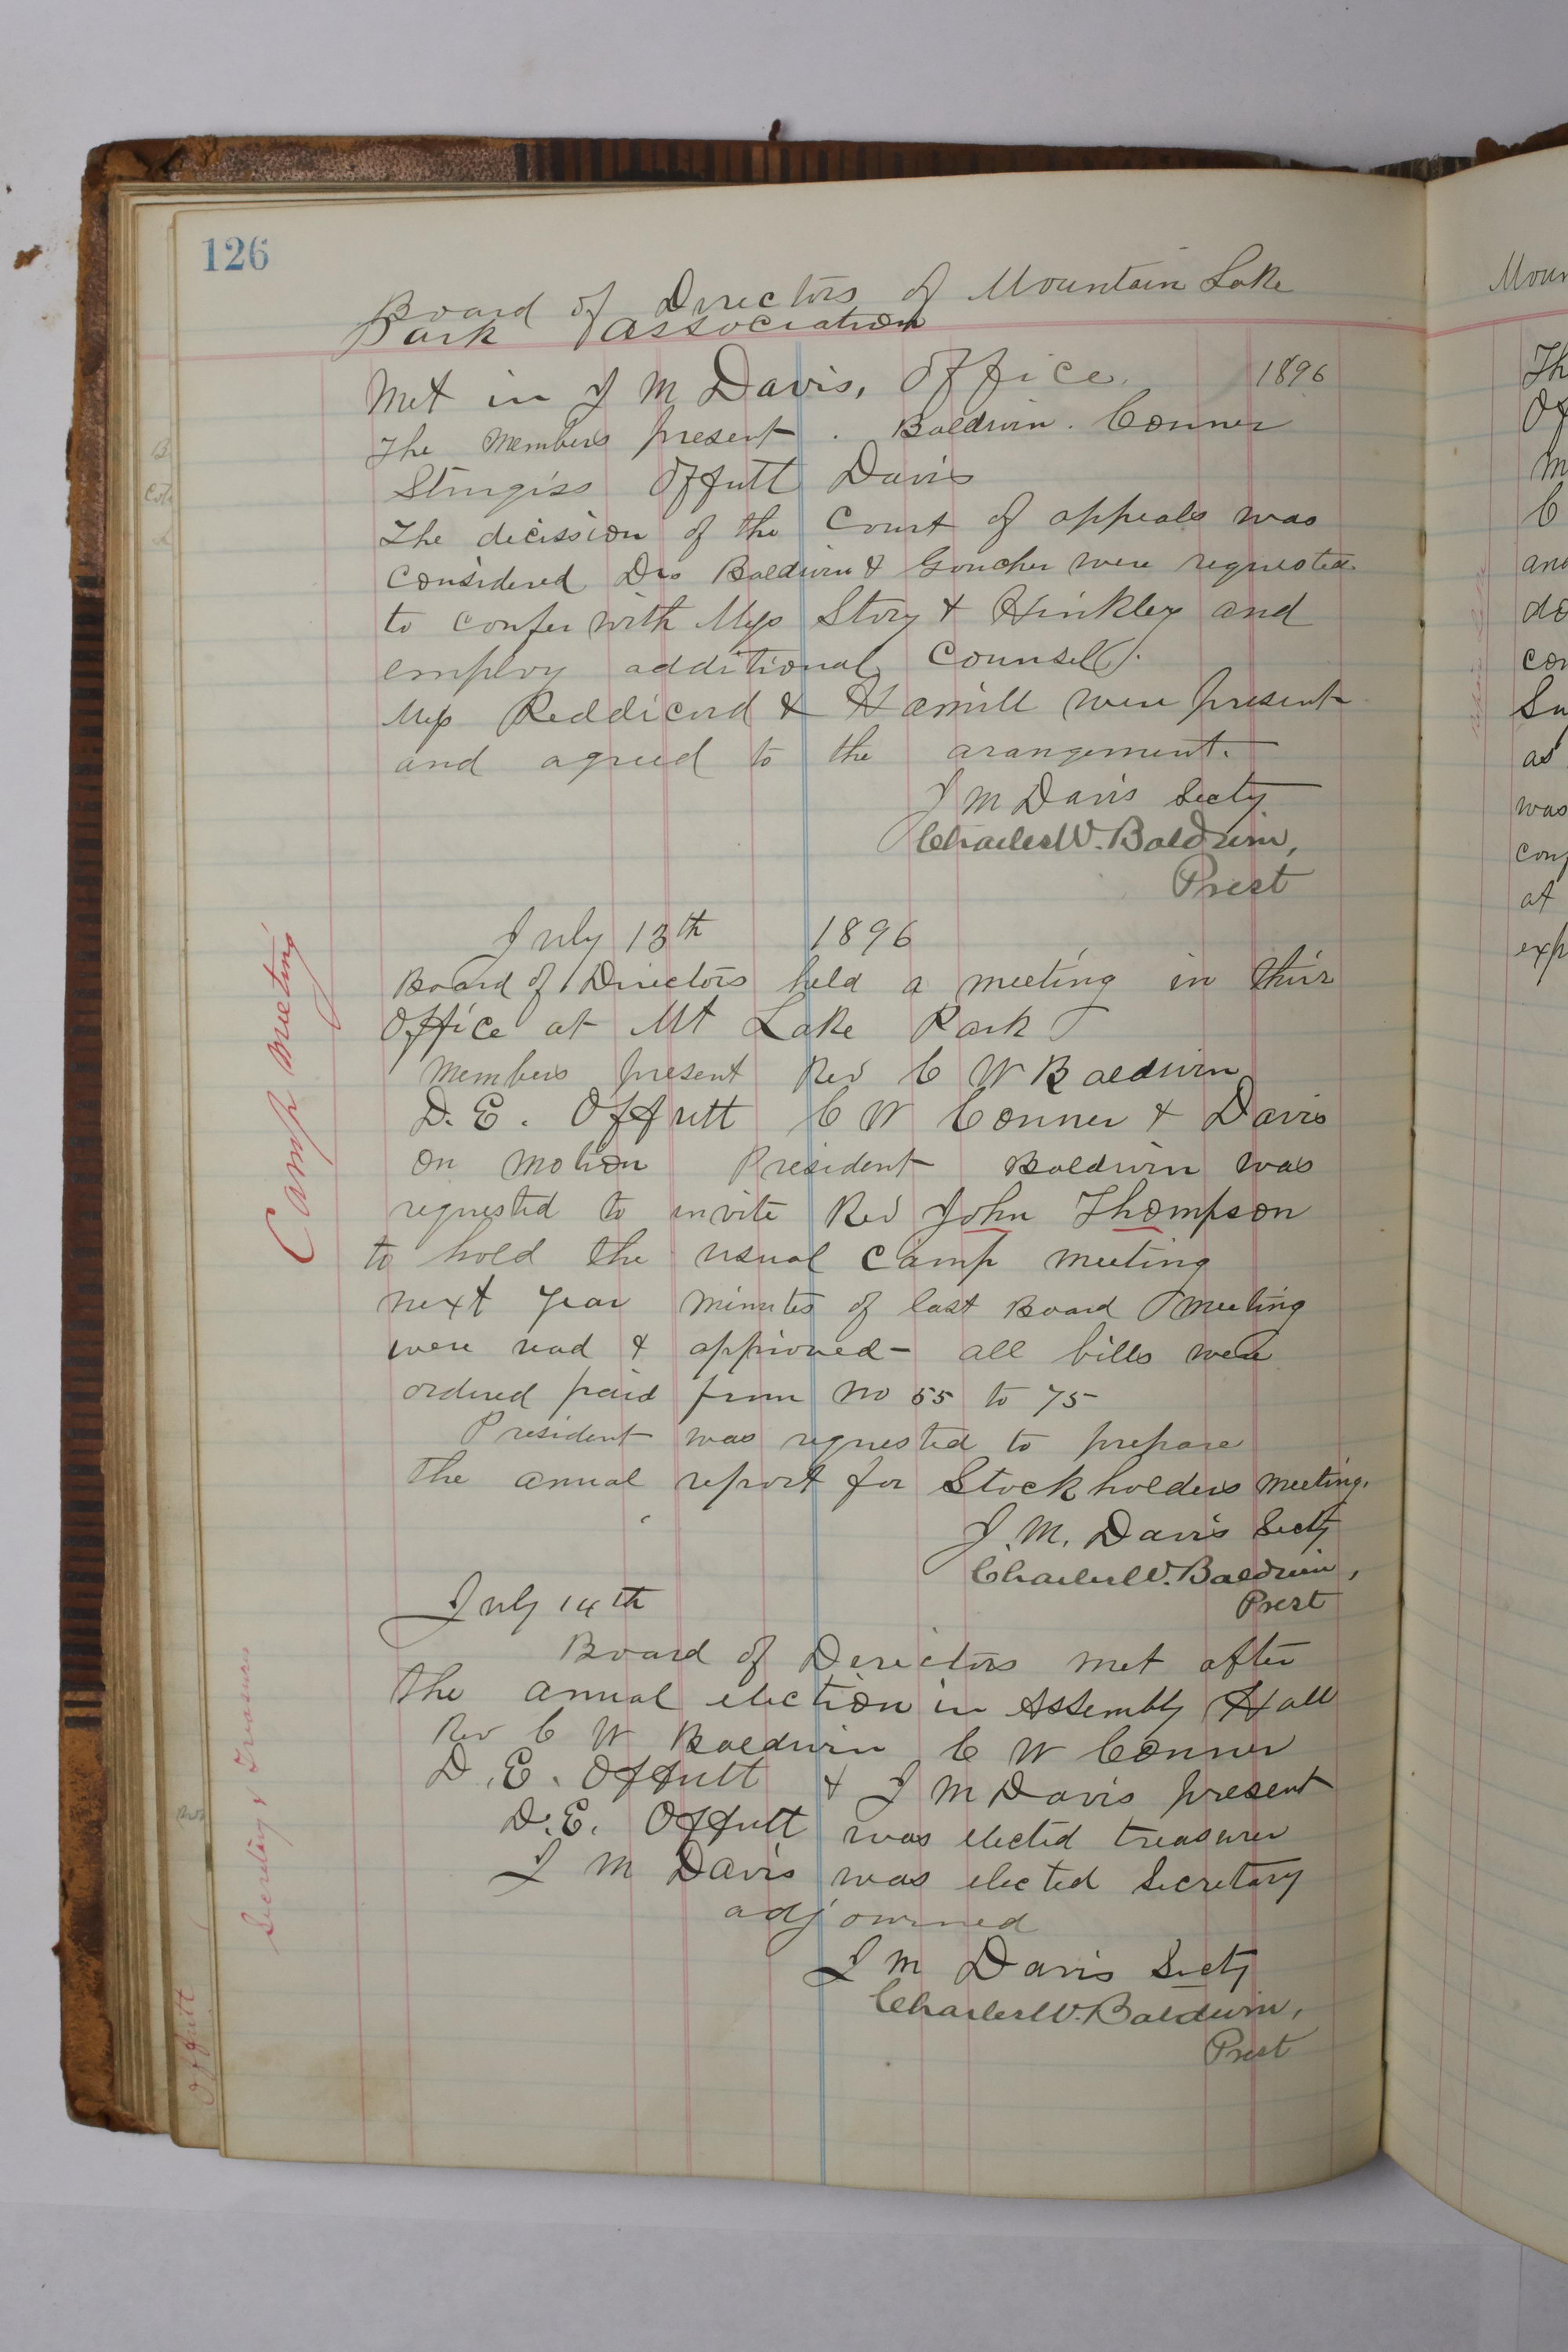 126
Board of Directors of Mountain Lake
Park Association
Met in J M Davis, Office. 1896
The Members present. Baldwin. Conner
Sturgiss Offutt Davis
The decission of the Court of appeals was
Considered Drs Baldwin & Goucher were requested
to confer with Mess Story & Hinkley and
employ additional Counsell.
Mess Reddicord & Hamill were present
and agreed to the arangement.
J M Davis Secty
Charles W. Baldwin,
Prest
July 13th 1896
Board of Directors held a meeting in thir
Office at Mt Lake Park
Members present Rev C W Baldwin
D. E. Offutt C W Conner & Davis
On Motion President Baldwin was
requested to invite Rev John Thompson
to hold the usual Camp Meeting
next year minutes of last Board Meeting
were read & approved - all bills were
ordered paid from No 55 to 75
President was requested to prepare
the annual report for Stockholders Meeting.
J. M. Davis Secty
Charles W. Baldwin,
Prest
July 14th
Board of Derictors met after
the annual election in Assembly Hall
Rev C W Baldwin C W Conner
D. E. Offutt & J M Davis present
D. E. Offutt was elected treasurer
J M Davis was elected Secretary
adjourned
J M Davis Secty
Charles W. Baldwin,
Prest
Camp Meeting
Secretary & Treasurer
Offutt
Moun
Th
Of
M
C
and
do
con
Su
as
was
conf
at
exp